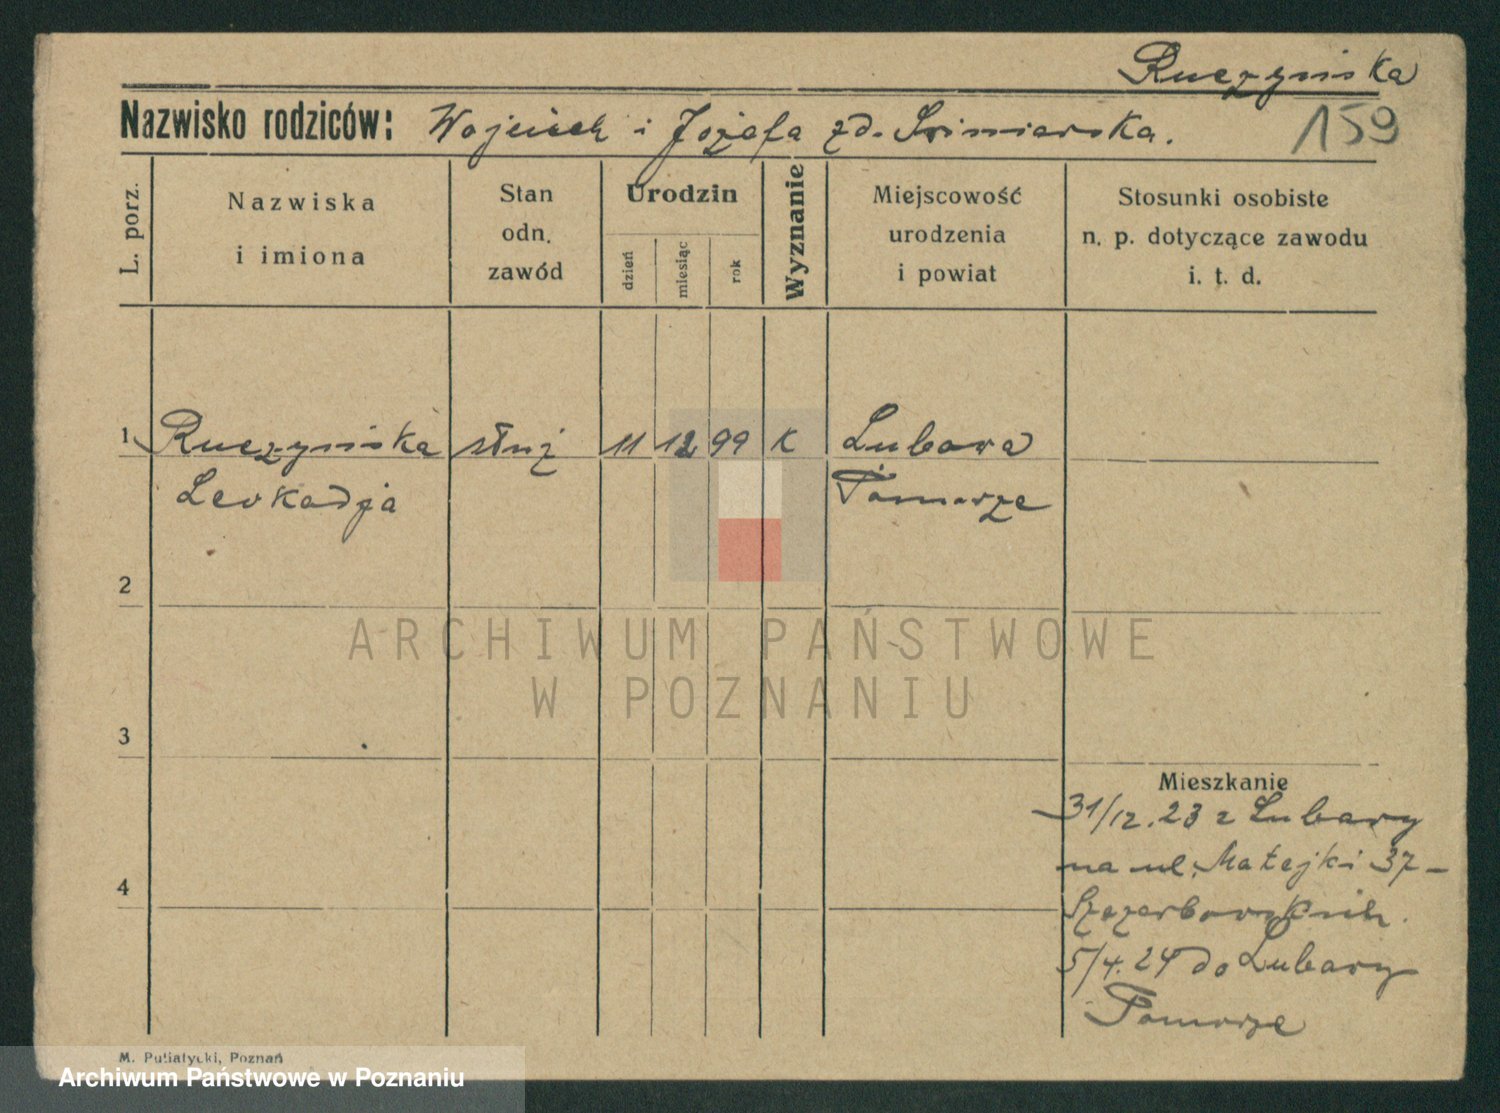 Ruczyńska
159
Nazwisko rodziców: Wojciech i Józefa zd. Świniarska.
L. porz.
Nazwiska
i imiona
Stan
odn.
zawód
Urodzin
dzień
miesiąc
rok
Wyznanie
Miejscowość
urodzenia
i powiat
Stosunki osobiste
n. p. dotyczące zawodu
i. t. d.
1 Ruczyńska służ 11 12 99 K Lubawa
Leokadja Pomorze
2
3
4
Mieszkanie
31/12.23 z Lubawy
na ul. Matejki 37 -
5/4.24 do Lubawy
Pomorze
M. Putiatycki, Poznań
ARCHIWUM PAŃSTWOWE
W POZNANIU
Archiwum Państwowe w Poznaniu